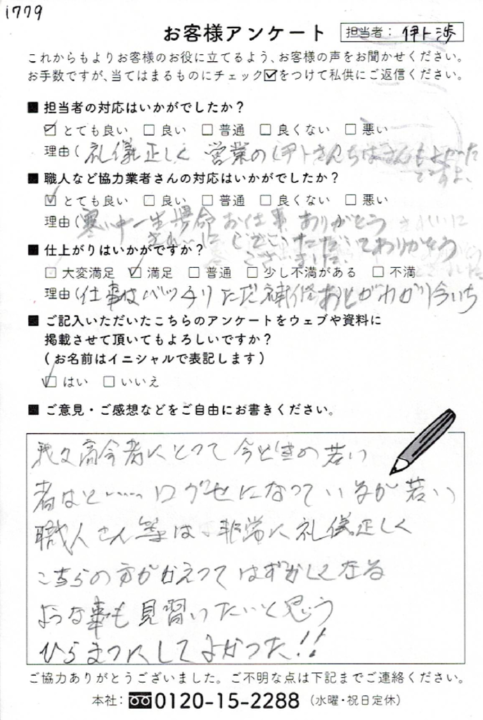 1779
お客様アンケート 担当者：伊ト渉
これからもよりお客様のお役に立てるよう、お客様の声をお聞かせください。
お手数ですが、当てはまるものにチェック☑をつけて私供にご返信ください。
■ 担当者の対応はいかがでしたか？
☑ とても良い □ 良い □ 普通 □ 良くない □ 悪い
理由（礼儀正しく 営業の伊トさん
ですよ、
■ 職人など協力業者さんの対応はいかがでしたか？
☑ とても良い □ 良い □ 普通 □ 良くない □ 悪い
理由（寒い中一生懸命お仕事ありがとう
していただいてありがとう
ございました
■ 仕上がりはいかがですか？
□ 大変満足 ☑ 満足 □ 普通 □ 少し不満がある □ 不満
理由（仕事はバッチリ ただ補修あとがわかり今いち
■ ご記入いただいたこちらのアンケートをウェブや資料に
掲載させて頂いてもよろしいですか？
（お名前はイニシャルで表記します）
☑ はい □ いいえ
■ ご意見・ご感想などをご自由にお書きください。
我々高令者にとって 今どきの若い
者はと…… 口グセになっているが 若い
職人さん等は、非常に礼儀正しく
こちらの方がかえってはずかしくなる
ような事も 見習いたいと思う
ひらまつにしてよかった!!
ご協力ありがとうございました。ご不明な点は下記までご連絡ください。
本社：0120-15-2288（水曜・祝日定休）